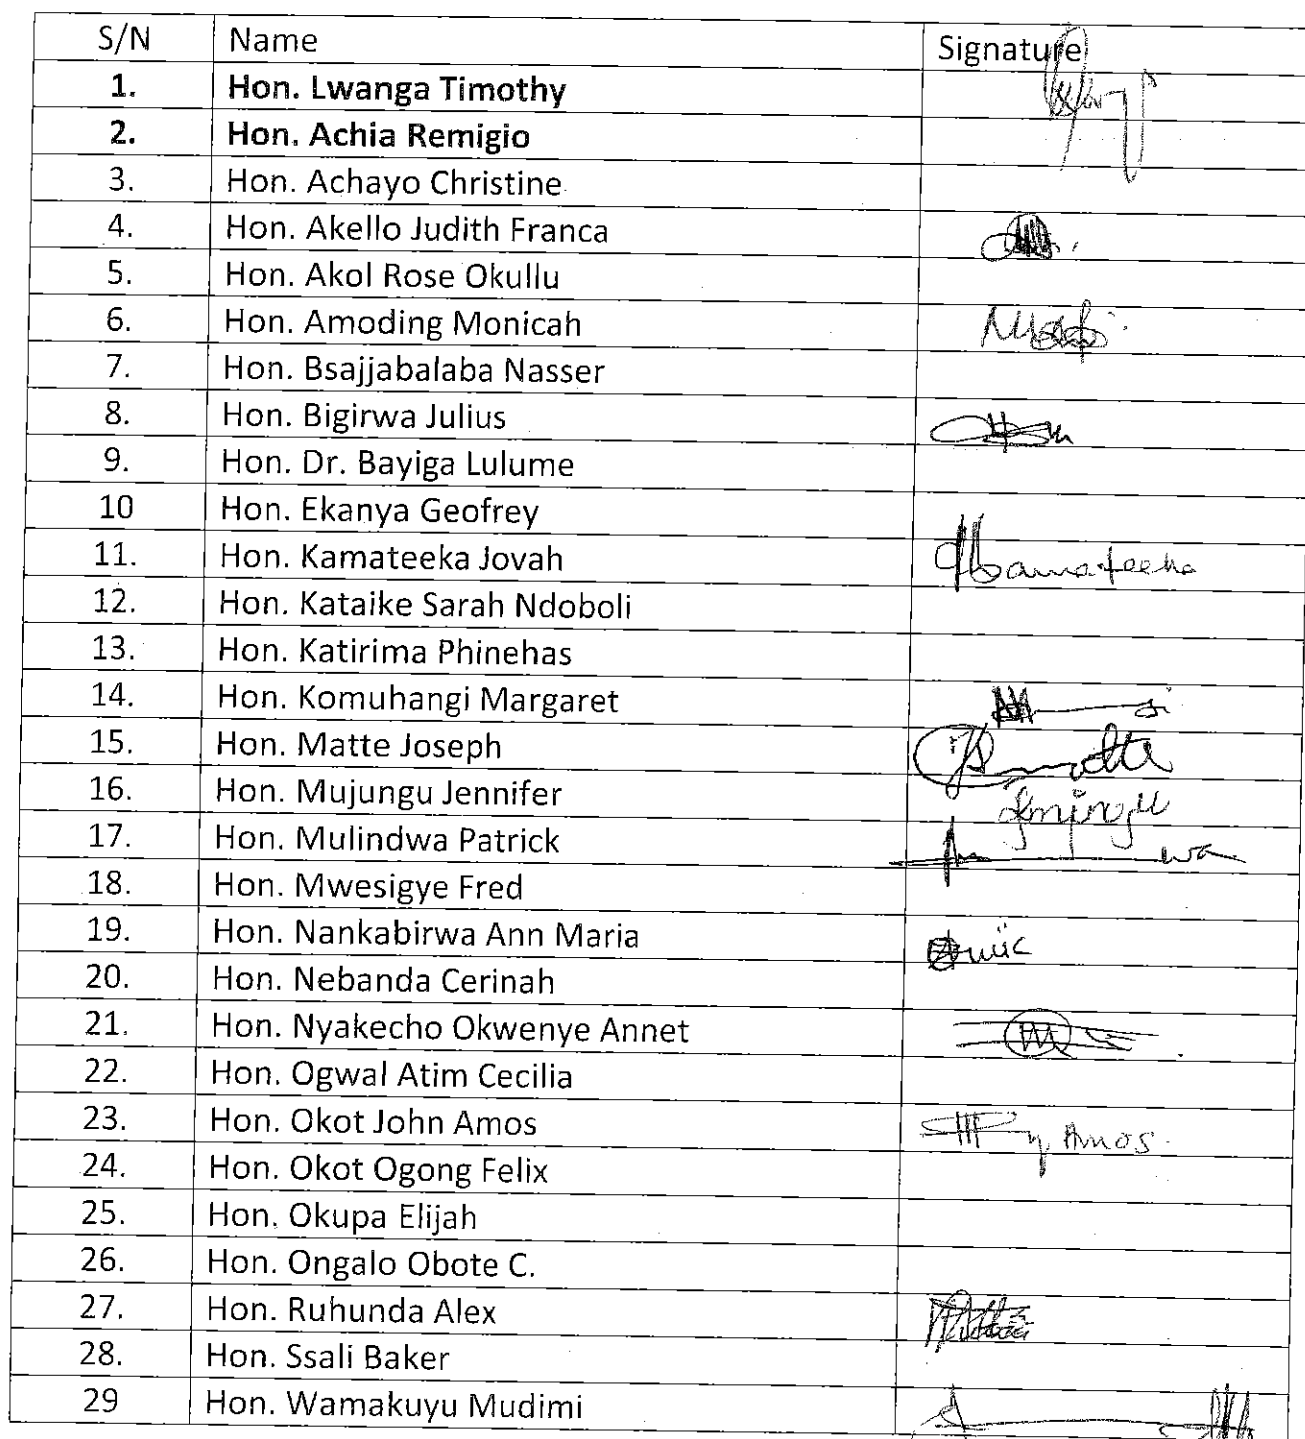 S/N Name Signature
1. Hon. Lwanga Timothy
2. Hon. Achia Remigio
3. Hon. Achayo Christine
4. Hon. Akello Judith Franca
5. Hon. Akol Rose Okullu
6. Hon. Amoding Monicah
7. Hon. Bsajjabalaba Nasser
8. Hon. Bigirwa Julius
9. Hon. Dr. Bayiga Lulume
10 Hon. Ekanya Geofrey
11. Hon. Kamateeka Jovah Kamateeka
12. Hon. Kataike Sarah Ndoboli
13. Hon. Katirima Phinehas
14. Hon. Komuhangi Margaret
15. Hon. Matte Joseph
16. Hon. Mujungu Jennifer
17. Hon. Mulindwa Patrick
18. Hon. Mwesigye Fred
19. Hon. Nankabirwa Ann Maria
20. Hon. Nebanda Cerinah
21. Hon. Nyakecho Okwenye Annet
22. Hon. Ogwal Atim Cecilia
23. Hon. Okot John Amos Amos.
24. Hon. Okot Ogong Felix
25. Hon. Okupa Elijah
26. Hon. Ongalo Obote C.
27. Hon. Ruhunda Alex
28. Hon. Ssali Baker
29 Hon. Wamakuyu Mudimi